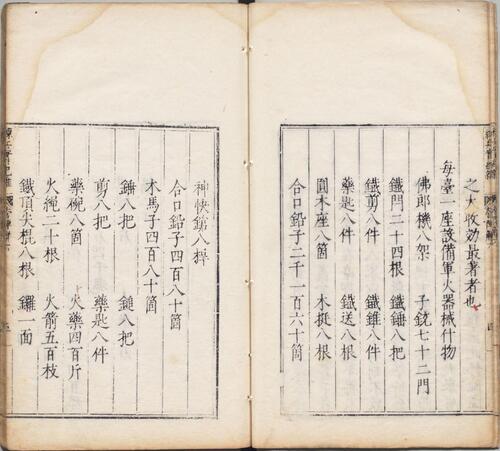 之大收効最著者也
每臺一座該備軍火器械什物
佛郎機八架　子銃七十二門
鐵閂二十四根　鐵錘八把
鐵剪八件　鐵錐八件
藥匙八件　鐵送八根
圓木座八箇　木梃八根
合口鉛子二千一百六十箇
神快鎗八桿
合口鉛子四百八十箇
木馬子四百八十箇
錘八把　鎚八把
剪八把　藥匙八件
藥碗八箇　火藥四百斤
火繩二十根　火箭五百枝
鐵頂尖棍八根　鑼一面